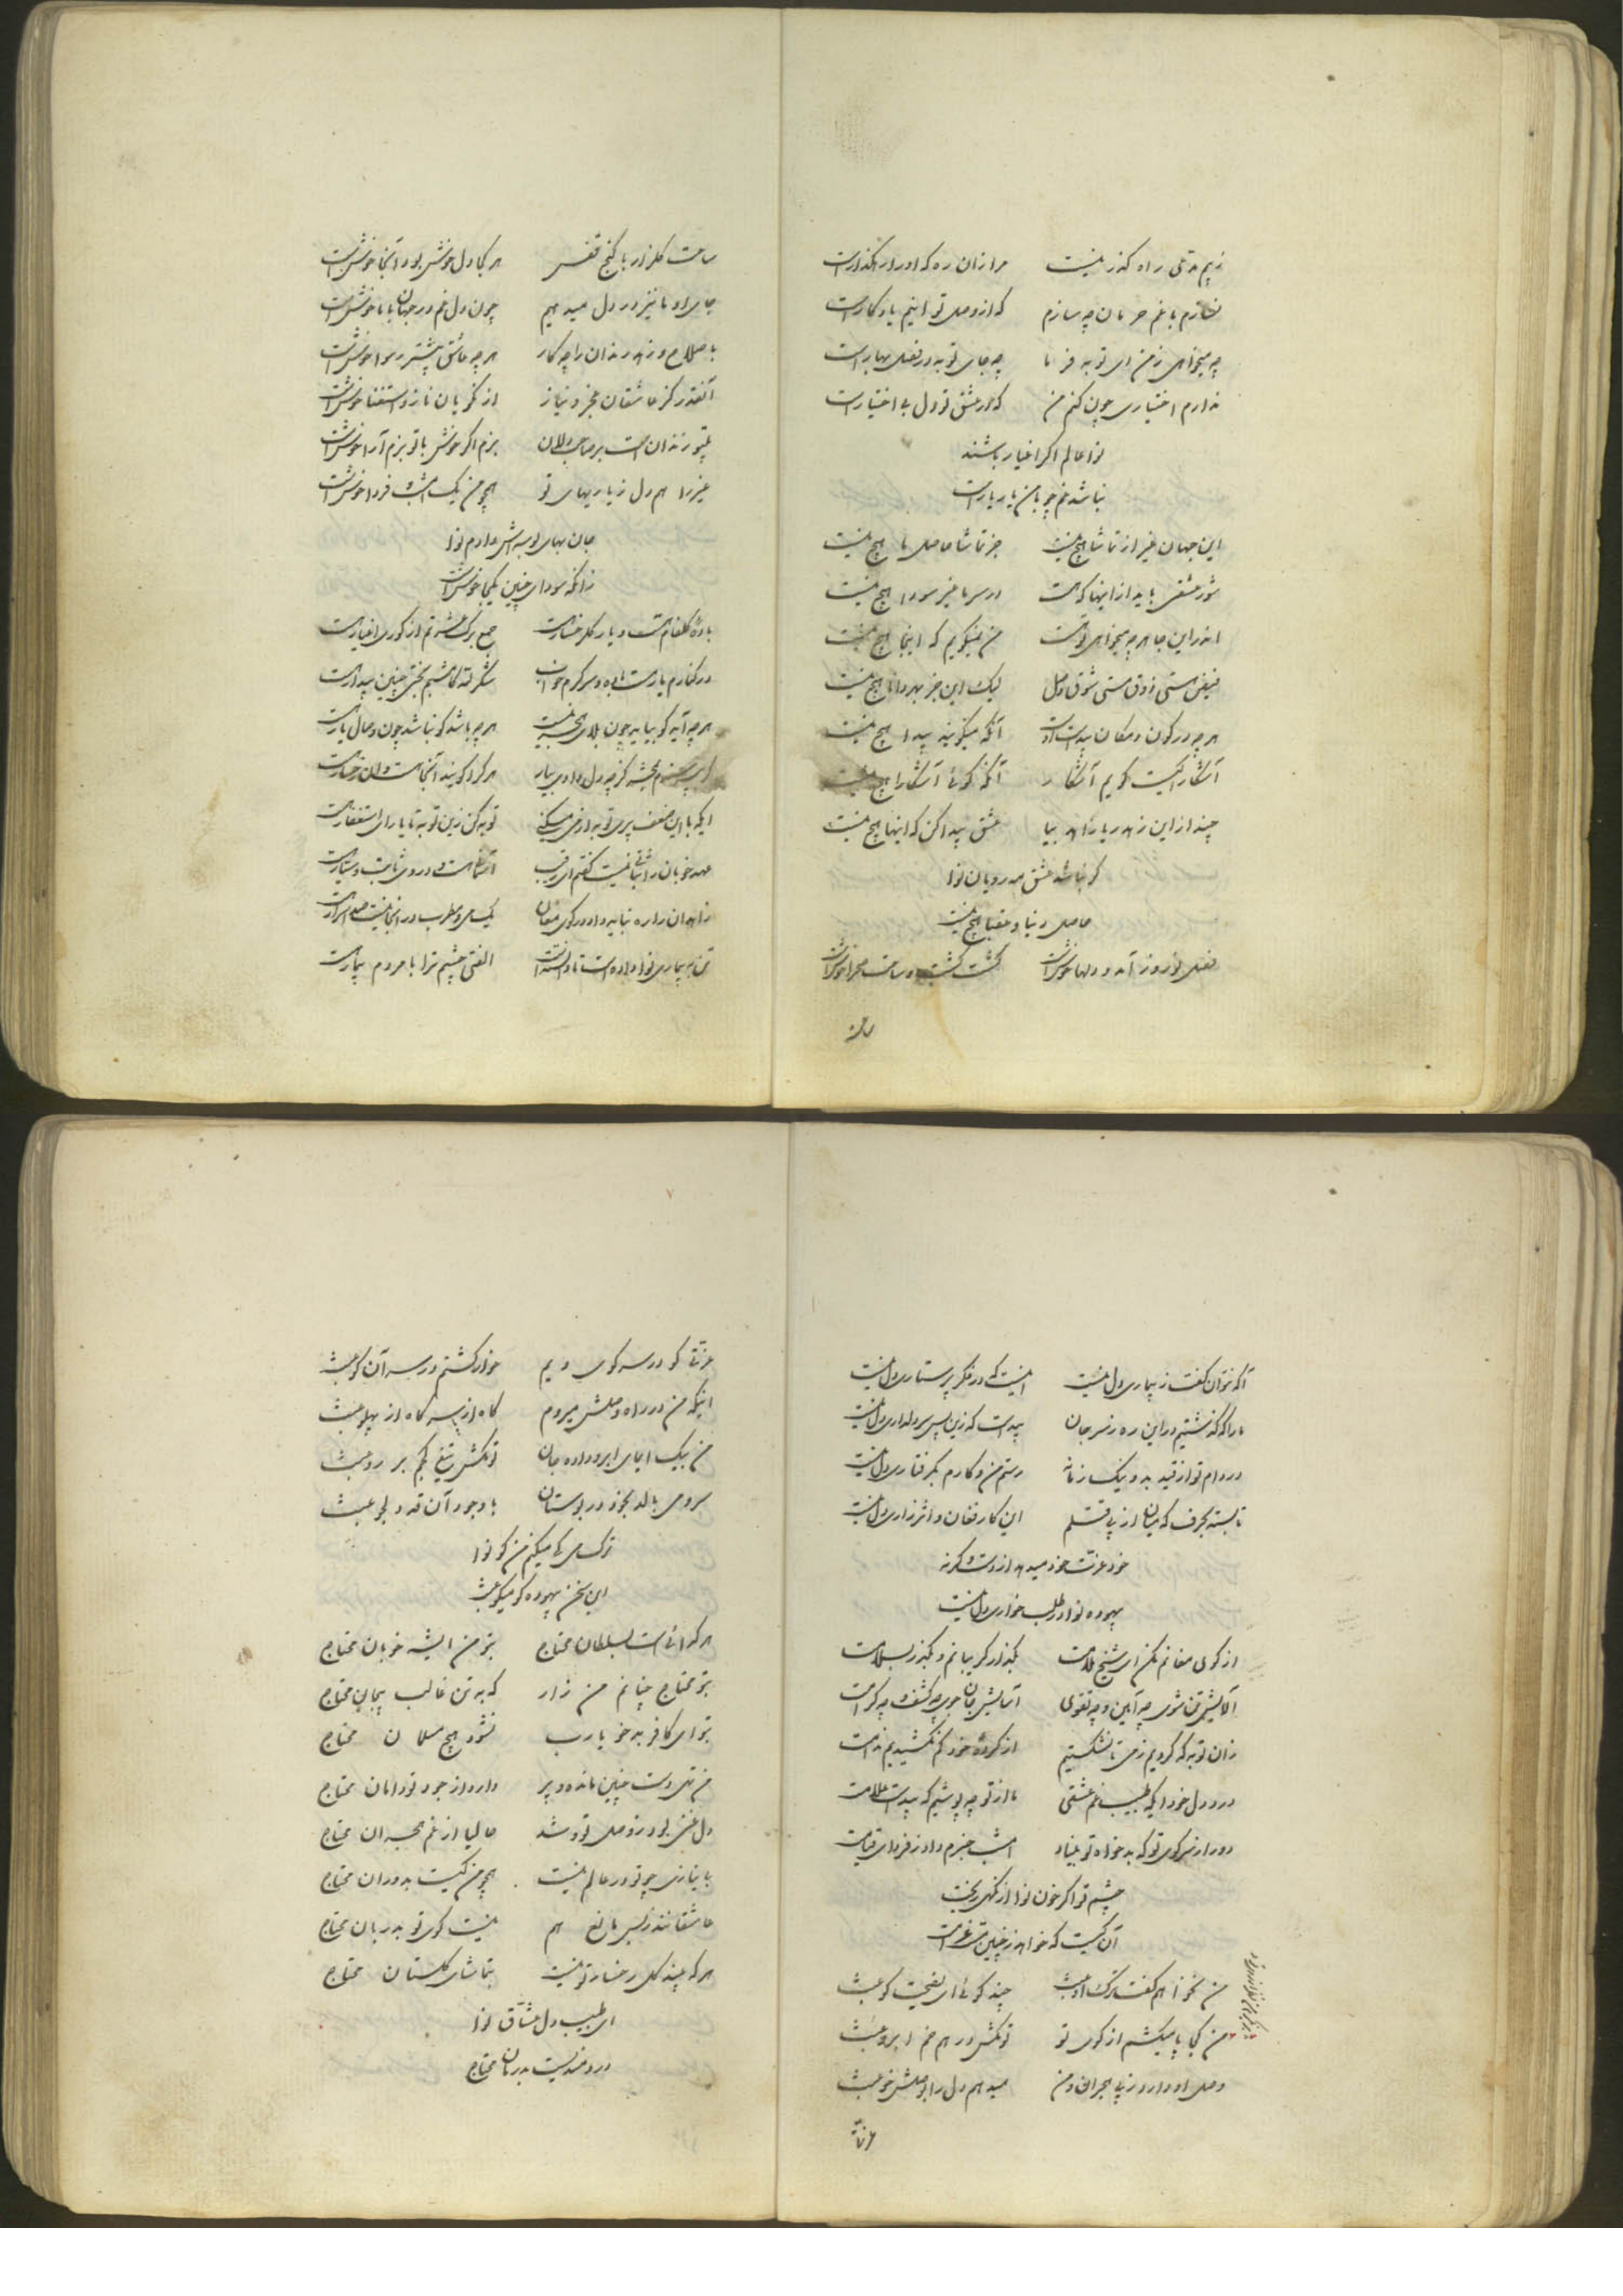 ز بیم مدعی راه گذر نیست مرا زان ره که او را رهگذارست
نسازم با غم حرمان چه سازم که از وصل تو اینم یادگارست
چه میخواهی ز من ای توبه فرما چه جای توبه در فصل بهارست
ندارم اختیاری چون کنم من که در عشق تو دل بی اختیارست
نوا عالم اگر اغیار باشند
نباشد غم چو با من یار یارست
این جهان غیر از تماشا هیچ نیست جز تماشا حاصل ما هیچ نیست
شور عشقی باید از اینها که هست در سر ما غیر سودا هیچ نیست
اندر این جا هر چه میخواهی توهست من نمیگویم که اینجا هیچ نیست
فیض هستی ذوق مستی شوق وصل لیک این جز بهر دانا هیچ نیست
هر چه در کون و مکان پیداست اوست آنکه میگویند پیدا هیچ نیست
آشکارا کیست گویم آشکار آنکه گوئی آشکارا هیچ نیست
چند از این زهد ریا زاهد بیا عشق پیدا کن که اینها هیچ نیست
گر نباشد عشق مه رویان نوا
حاصل دنیا و عقبا هیچ نیست
فصل نوروز آمد و دلها خوشست گشت کشت و ساحت صحرا خوشست
ساحت
ساحت گلزار با کنج قفس هر کجا دل خوش بود آنجا خوشست
جای او ما نیز در دل میدهیم چون دل غم در جهان با ما خوشست
با صلاح و زهد رندان را چه کار هر چه عاشق بیشتر رسوا خوشست
آنقدر کز عاشقان عجز و نیاز از نکویان ناز و استغنا خوشست
بیتو زندان است بر صاحبدلان بزم اگر خوش با تو بزم آرا خوشست
غیر را هم دل ز یاریهای تو همچو من یک امشب و فردا خوشست
جان بهای بوسه اش دادم نوا
زانکه سودای چنین یکجا خوشست
باده گلفام است و یار گلرخسارست جمع برگ عشرتم از کوری اغیارست
در کنارم یار مست باده و سرگرم خواب شکر لله کامشبم بختی چنین بیدارست
هر چه آید گو بیاید چون بلای هجر نیست هر چه باشد گو نباشد چون وصال یارست
چشم کز چه دل دادی بیار هر کرا گویند آنجا هست و ان رخسارست
ایکه با این ضعف پیری توبه از می میکنی توبه کن زین توبه تا یارای استغفارست
عهد خوبان را ثباتی نیست گفتم ای رقیب
زاهدان را ره نباید داد در کوی مغان یک می و مطرب در آنجا نیست صد اسرارست
تن به بیماری نوا داده است تا دانسته است الفتی چشم ترا با مردم بیمارست
آنکه نتوان گفت ز بیماری دل نیست اینست که در فکر پرستاری دل نیست
ما را که گذشتیم در این ره ز سر جان پیداست که زین پس سر دلداری دل نیست
در دام تو از قید بد و نیک زمانه رستم من و کارم بگرفتاری دل نیست
تا بسته بحرف که میان از پی قتلم این کار فغان و اثر زاری دل نیست
خود عزت خود میدهد از دست و گرنه
بیهوده نوا در طلب خواری دل نیست
از کوی مغانم مکن ای شیخ ملامت بگذار گریبانم و بگذر بسلامت
آلایش تن شوی چه آیین و چه تقوی آسایش جان جوی چه کشف و چه کرامت
زان توبه که کردیم ز می تا نشکستیم از کرده خود کم نکشیدیم ندامت
درد دل خود ایکه طبیب غم عشقی ما از تو چه پوشیم که پیداست علامت
دور از سر کوی تو که بدخواه تو بیناد امشب خبرم داد ز فردای قیامت
چشم تو اگر خون نوا از نگهی ریخت
آن کیست که خواهد ز چنین مست غرامت
من نخواهم گفت ترک او عبث چند گوئی ای نصیحت گو عبث
من کجا پا میکشم از کوی تو تو مکش در هم خم ابرو عبث
وصل او دارد ز پی هجران و من میدهم دل را بوصلش خو عبث
عزتی
عزتی کو در سر کوی ویم خوار گشتم در سر آن کو عبث
اینکه من در راه وصلش میروم گاه از سر گاه از پهلو عبث
من بیک ایمای ابرو داده جان تو مکش تیغ کجم بر رو عبث
سرو می بالد بخود در بوستان با وجود آن قد دلجو عبث
ترک می کی میکنم من گو نوا
این سخن بیهوده گو میگو عبث
هر گدائی است بسلطان محتاج بتو من ای شه خوبان محتاج
بتو محتاج چنانم من زار که به تن غالب بیجان محتاج
بتو ای کافر بدخو یا رب نشود هیچ مسلمان محتاج
من تهی دست چنین مانده و پر دارد از جود تو دامان محتاج
دل غنی بود ز وصل تو و شد حالیا از غم هجران محتاج
با نیازی چو تو در عالم نیست همچو من کیست بدوران محتاج
عاشقانند ز بس مانع هم نیست کوی تو بدربان محتاج
هر که چیند گل رخسار تو نیست بتماشای گلستان محتاج
ای طبیب دل عشاق نوا
دردمندیست بدرمان محتاج